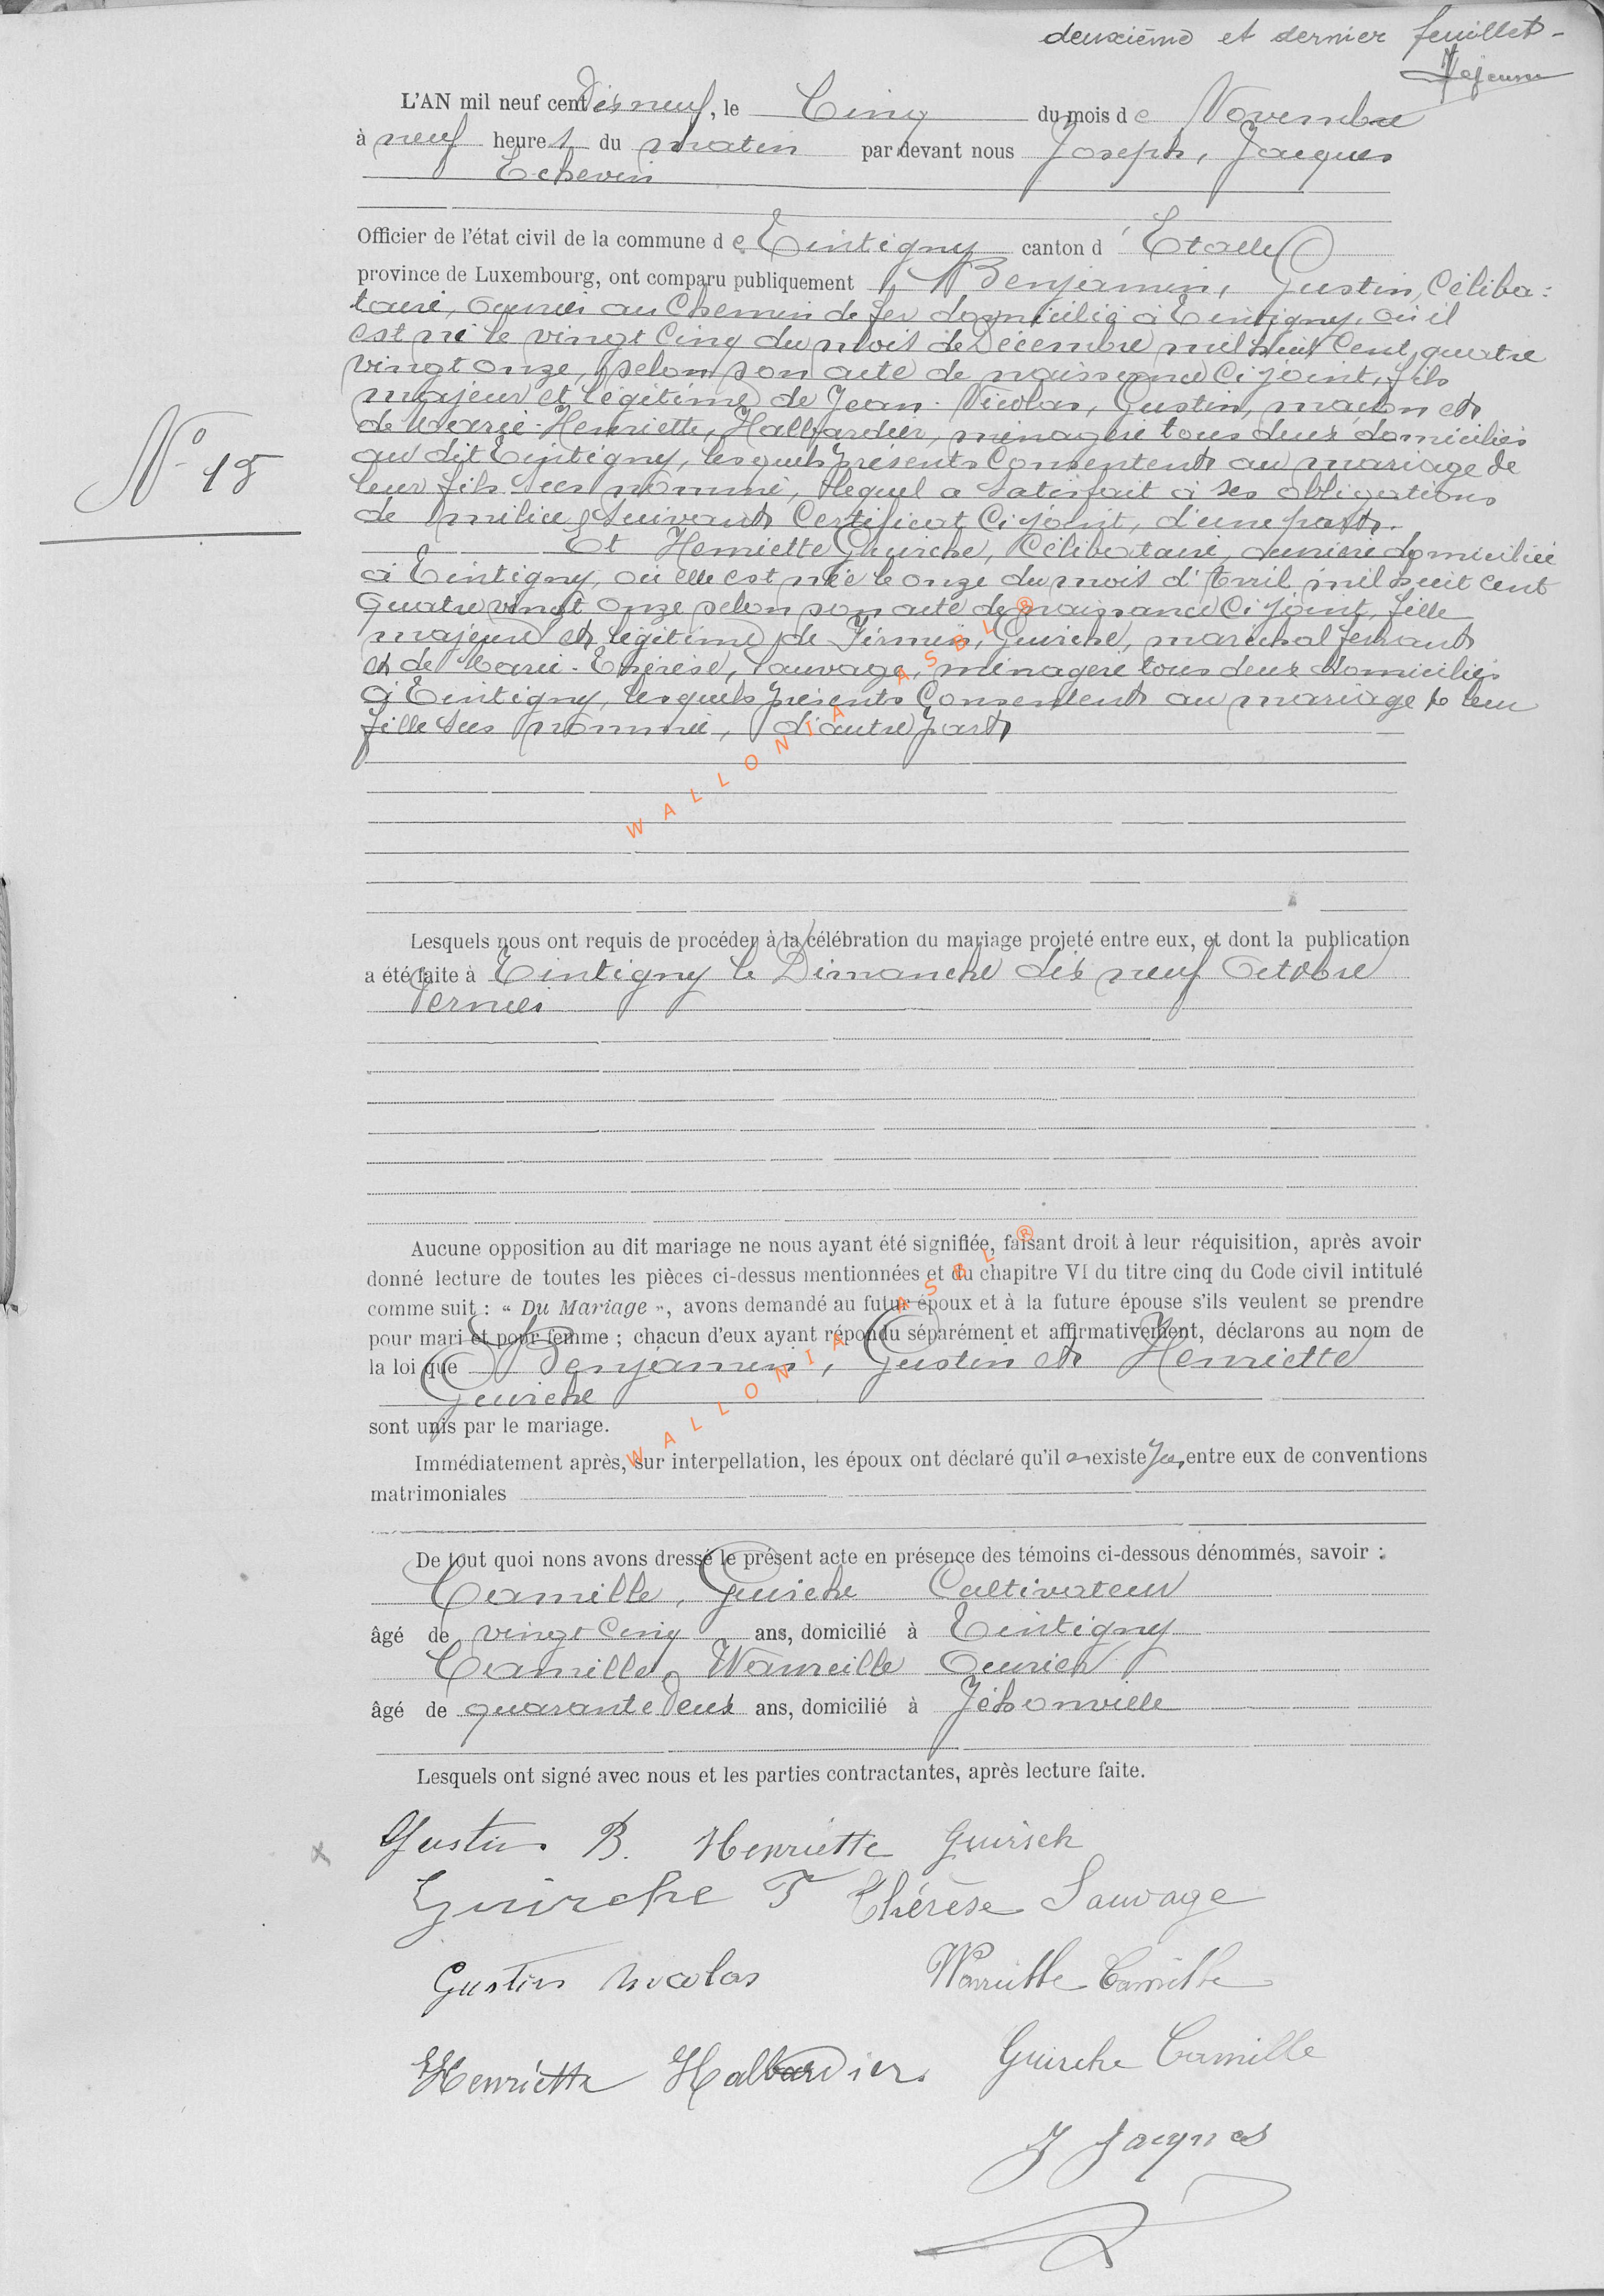 deuxième et dernier feuillet -
Lejeune
L'AN mil neuf cent dix neuf, le Cinq du mois de Novembre
à neuf heures du matin par devant nous Joseph, Jacques
Echevin
Officier de l'état civil de la commune de Tintigny canton d'Etalle
province de Luxembourg, ont comparu publiquement Benjamin, Gustin, Céliba=
taire, ouvrier au Chemin de fer domicilié à Tintigny, où il
est né le vingt Cinq du mois de Décembre mil huit Cent quatre
vingt onze, selon son acte de naissance Ci joint, fils
majeur et légitime de Jean-Nicolas, Gustin, maçon et
de Marie-Henriette, Halbardier, ménagère tous deux domiciliés
au dit Tintigny, lesquels présents Consentent au mariage de
leur fils sus nommé, lequel a satisfait à ses obligations
de milice, suivant Certificat Ci joint, d'une part.
Et Henriette Guirche, Célibataire, ouvrière domiciliée
à Tintigny, où elle est née le onze du mois d'Avril mil huit cent
Quatre vingt onze selon son acte de naissance Ci joint, fille
majeure et légitime de Firmin, Guirche, maréchal ferrant
et de Marie-Thérèse, Sauvage, ménagère tous deux domiciliés
à Tintigny, lesquels présents Consentent au mariage de leur
fille sus nommée, d'autre part
N° 18
Lesquels nous ont requis de procéder à la célébration du mariage projeté entre eux, et dont la publication
a été faite à Tintigny le Dimanche dix neuf Octobre
dernier
Aucune opposition au dit mariage ne nous ayant été signifiée, faisant droit à leur réquisition, après avoir
donné lecture de toutes les pièces ci-dessus mentionnées et du chapitre VI du titre cinq du Code civil intitulé
comme suit : « Du Mariage », avons demandé au futur époux et à la future épouse s'ils veulent se prendre
pour mari et pour femme ; chacun d'eux ayant répondu séparément et affirmativement, déclarons au nom de
la loi que Benjamin, Gustin et Henriette
Guirche
sont unis par le mariage.
Immédiatement après, sur interpellation, les époux ont déclaré qu'il n'existe pas entre eux de conventions
matrimoniales
De tout quoi nons avons dressé le présent acte en présence des témoins ci-dessous dénommés, savoir :
Camille, Guirche Cultivateur
âgé de vingt Cinq ans, domicilié à Tintigny
Camille, Waureille Ouvrier
âgé de quarante deux ans, domicilié à Jéhonville
Lesquels ont signé avec nous et les parties contractantes, après lecture faite.
Gustin B. Henriette Guirsch
Guirche F Thérèse Sauvage
Gustin Nicolas Camille
Henriette Halbardier Guirche Camille
J Jacques
WALLONIA ASBL ®
WALLONIA ASBL ®